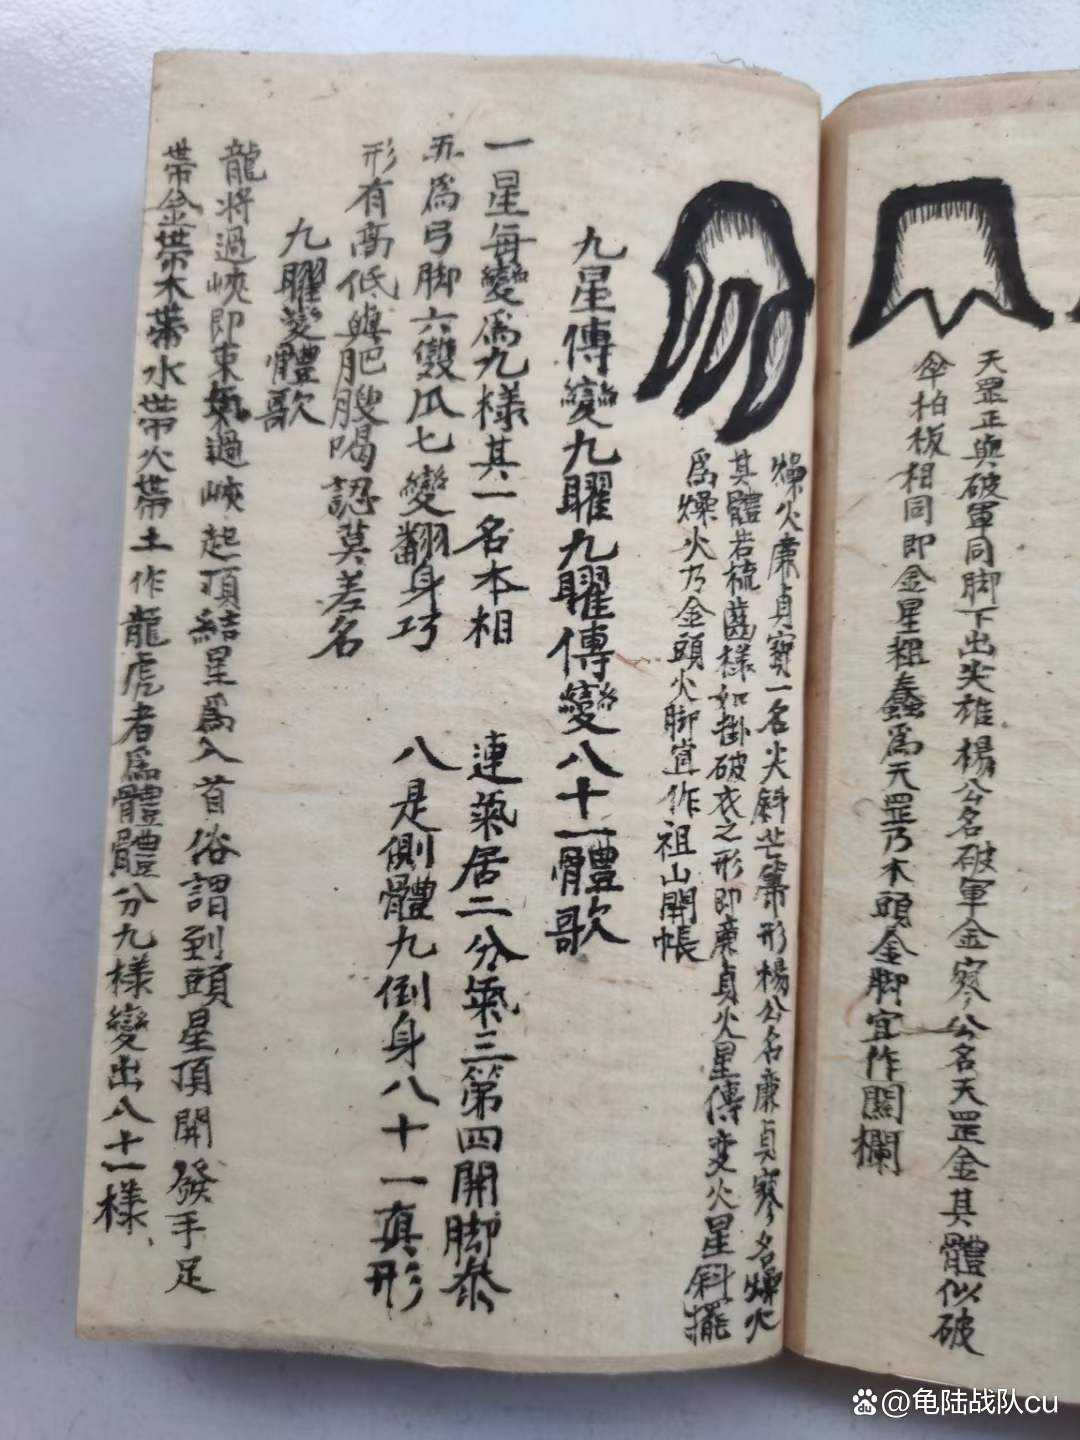 天罡正與破軍同脚下出尖雄楊公名破軍金寥公名天罡金其體似破
傘柏板相同即金星粗蠢為天罡乃木頭金脚宜作関欄
燥火亷貞寶一名尖斜芒箒形楊公名亷貞寥名燥火
其體若梳齒樣如掛破衣之形即亷貞火星傳变火星斜擺
為燥火乃金頭火脚宜作祖山開帳
九星傳變九曜九曜傳變八十一體歌
一星每變為九樣其一名本相 連氣居二分氣三第四開脚泰
五為弓脚六雙瓜七變翻身巧 八是側體九倒身八十一真形
形有高低與肥膄喝認莫差名
九曜變體歌
龍將過峽即束氣過峽起頂結星為入首俗謂到頭星頂開發手足
帶金帶木帶水帶火帶土作龍虎者為體體分九樣變出八十一樣、
@龟陆战队cu